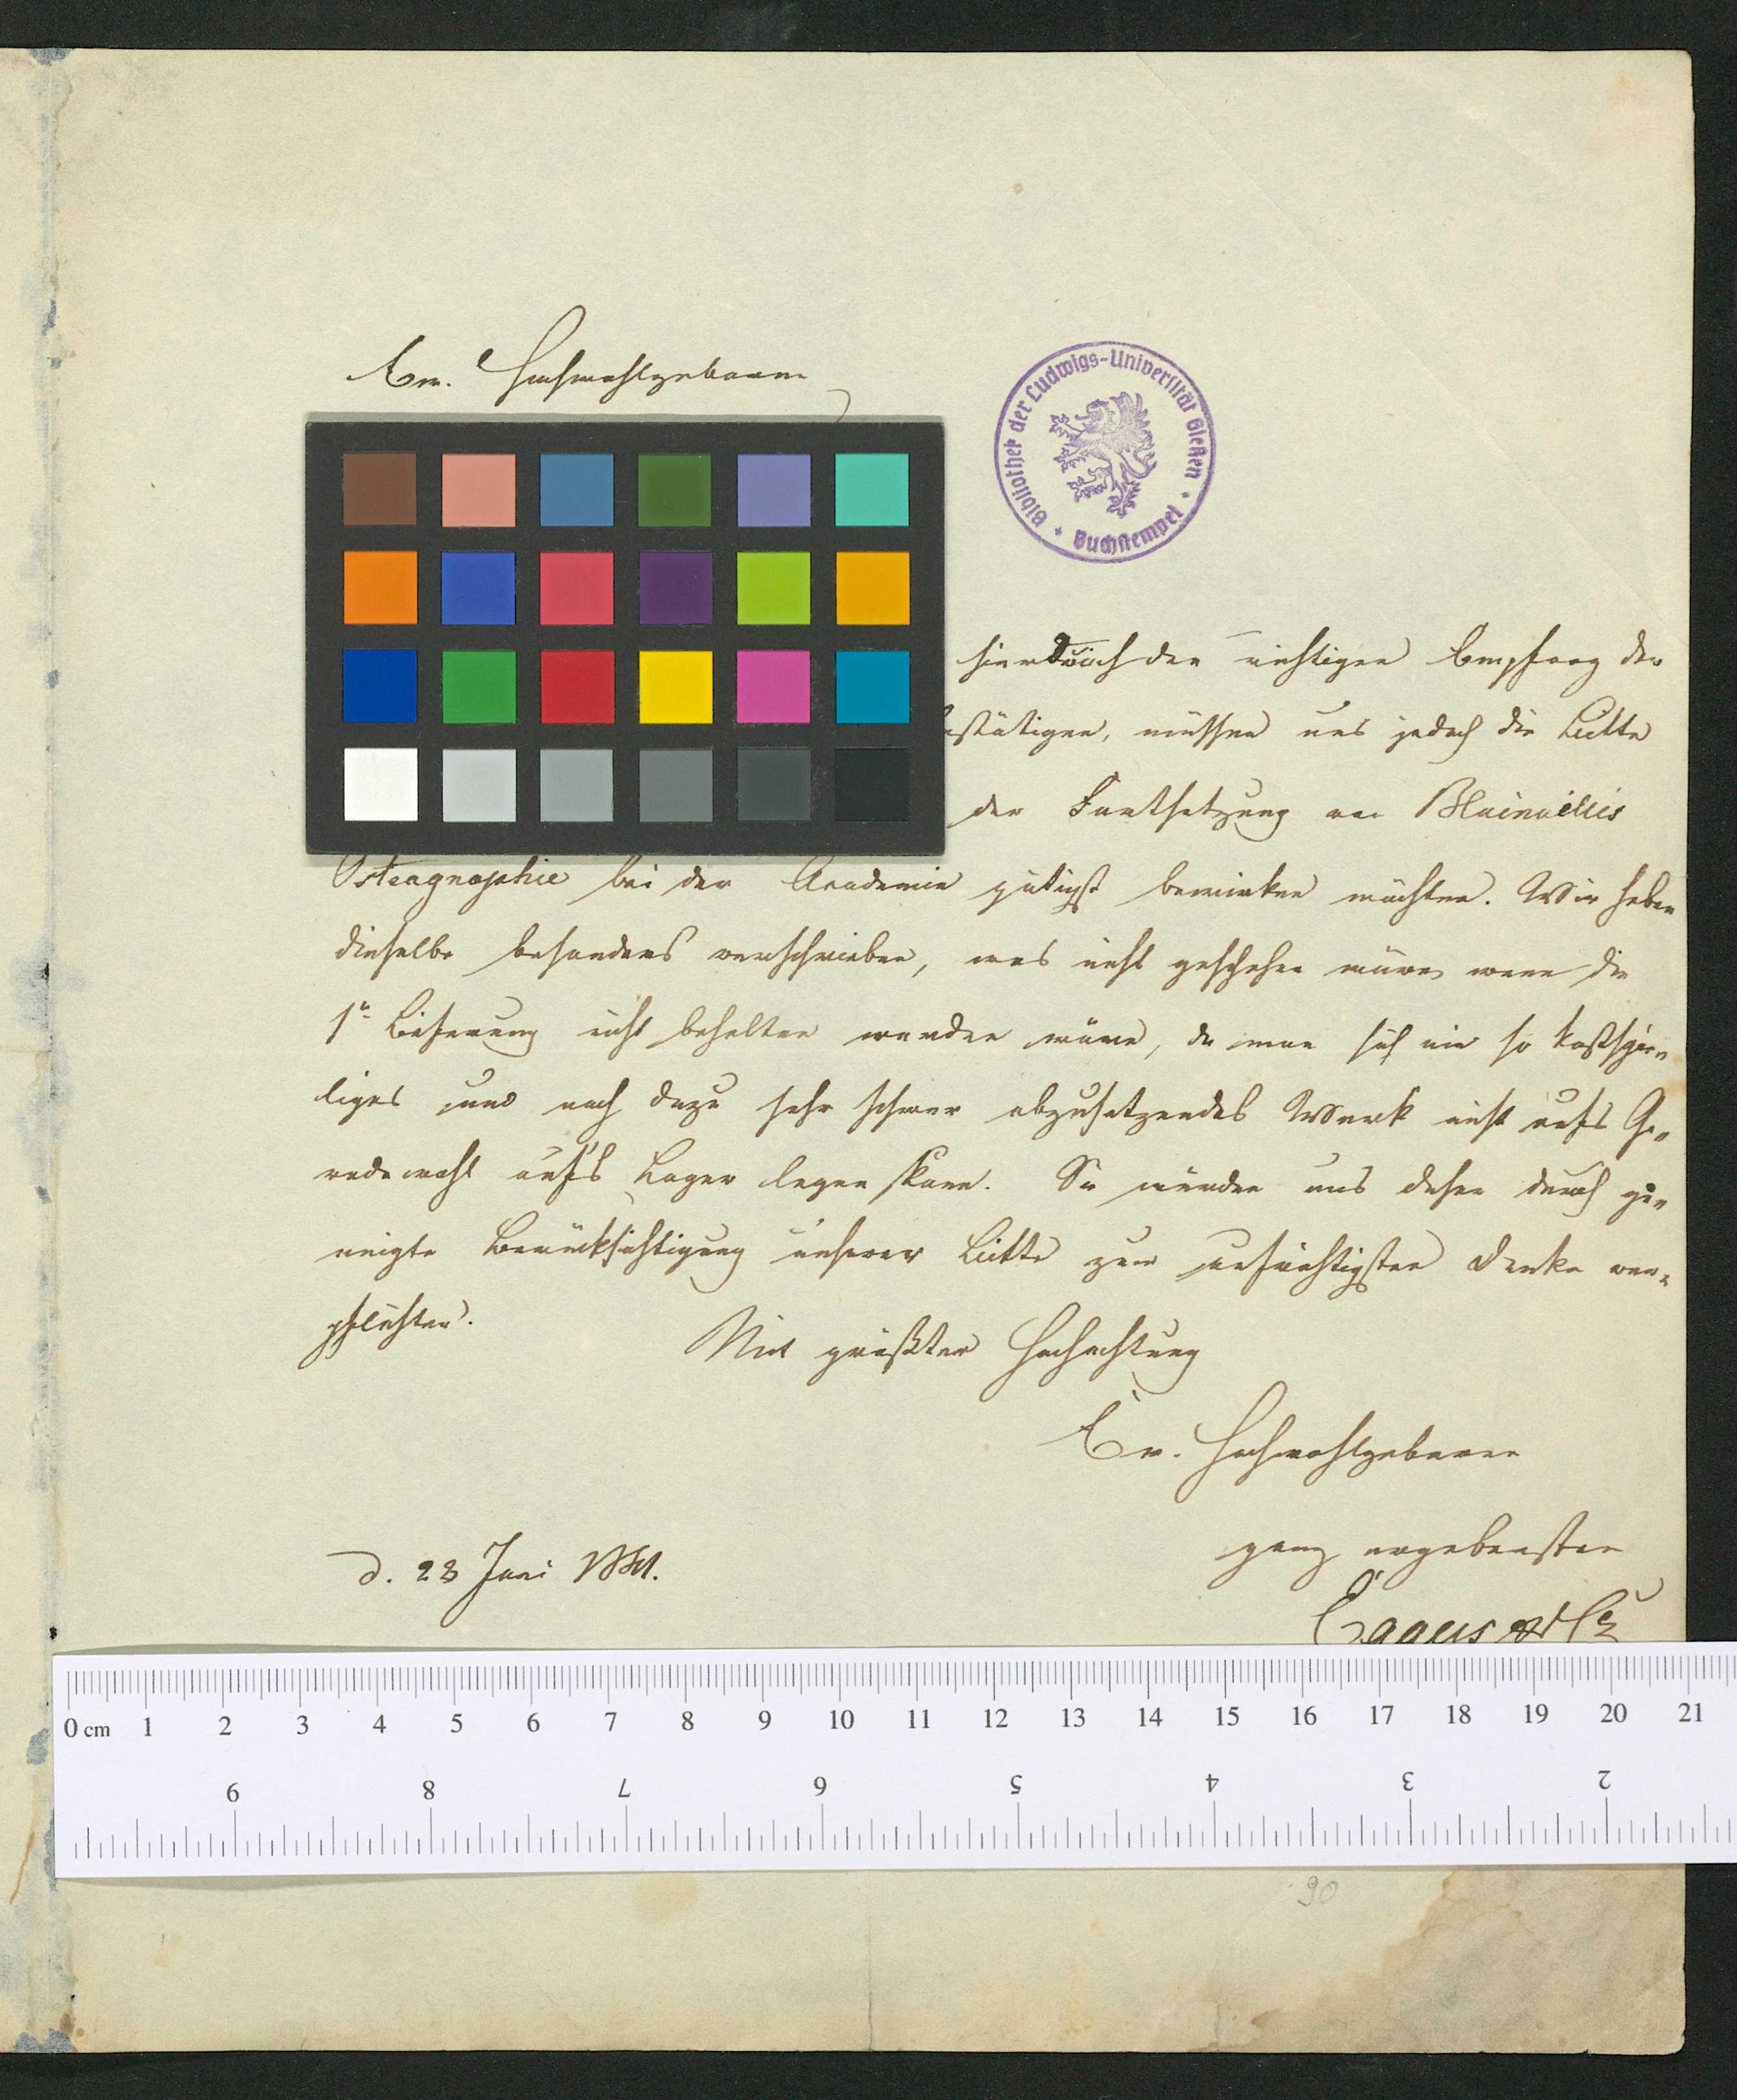 Ew. Hochwohlgeboren
Bibliothek der Ludwigs-Universität Gießen
Buchstempel
hierdurch den richtigen Empfang der
bestätigen, müssen uns jedoch die Bitte
der Fortsetzung von Blainvilles
Osteographie bei der Academie gütigst bewirken möchten. Wir haben
dieselbe besonders verschrieben, was nicht geschehen wäre, wenn die
1e Lieferung nicht behalten worden wäre, da man sich ein so kostspie-
liges und noch dazu sehr schwer abzusetzendes Werk nicht aufs Ge-
radewohl auf's Lager legen kann. Sie würden uns daher durch ge-
neigte Berücksichtigung unserer Bitte zum aufrichtigsten Danke ver-
pflichten.
Mit größter Hochachtung
Ew. Hochwohlgeboren
ganz ergebensten
d. 23 Juni
Eggers & Co
0 cm 1 2 3 4 5 6 7 8 9 10 11 12 13 14 15 16 17 18 19 20 21
9 8 7 6 5 4 3 2
90